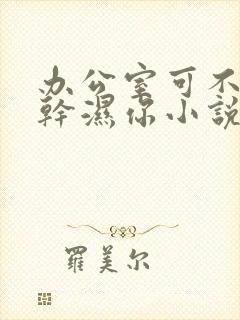 办公室可不
幹濕你小說
羅美尔